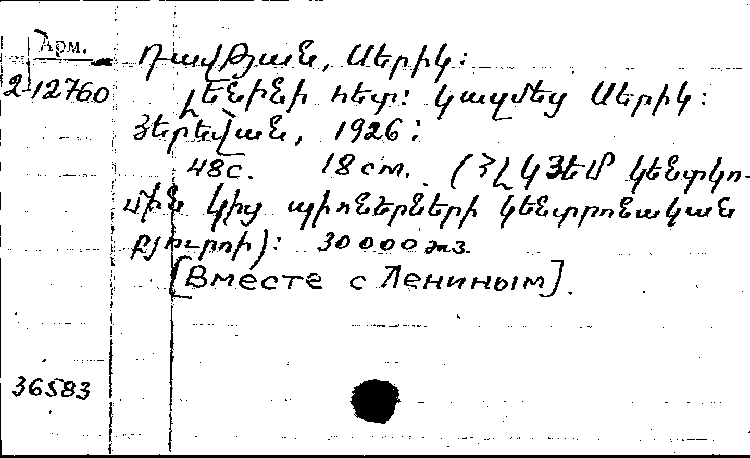 Арм.
Դավթյան, Սերիկ:
2-12760
Լենինի հետ: Կազմեց Սերիկ:
Յերեվան, 1926:
48с. 18 ст. (ՀԼԿՅԵՄ կենտկո-
մին կից պիոներների կենտրոնական
բյուրոի): 30000 экз.
[Вместе с Лениным].
36583